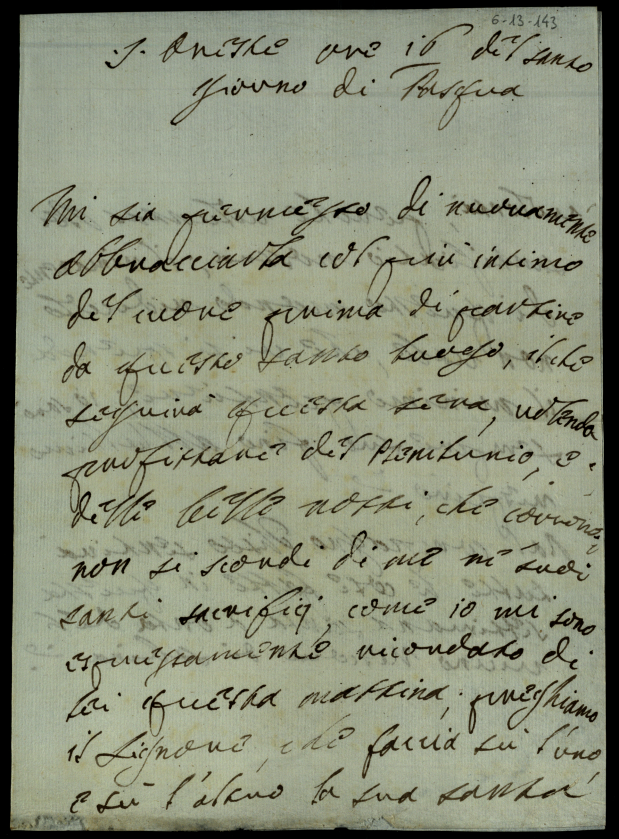 6-13-143
S. Oreste ore 16 del santo
giorno di Pasqua
Mi sia permesso di nuovamente
abbracciarla col più intimo
del cuore prima di partire
da questo santo luogo, il che
seguirà questa sera, volendo
profittare del Plenilunio, e
delle belle notti, che corrono;
non si scordi di me ne' suoi
santi sacrifizj, come io mi sono
espressamente ricordato di
lei questa mattina; preghiamo
il Signore, che faccia sù l'uno,
e sù l'altro la sua santa